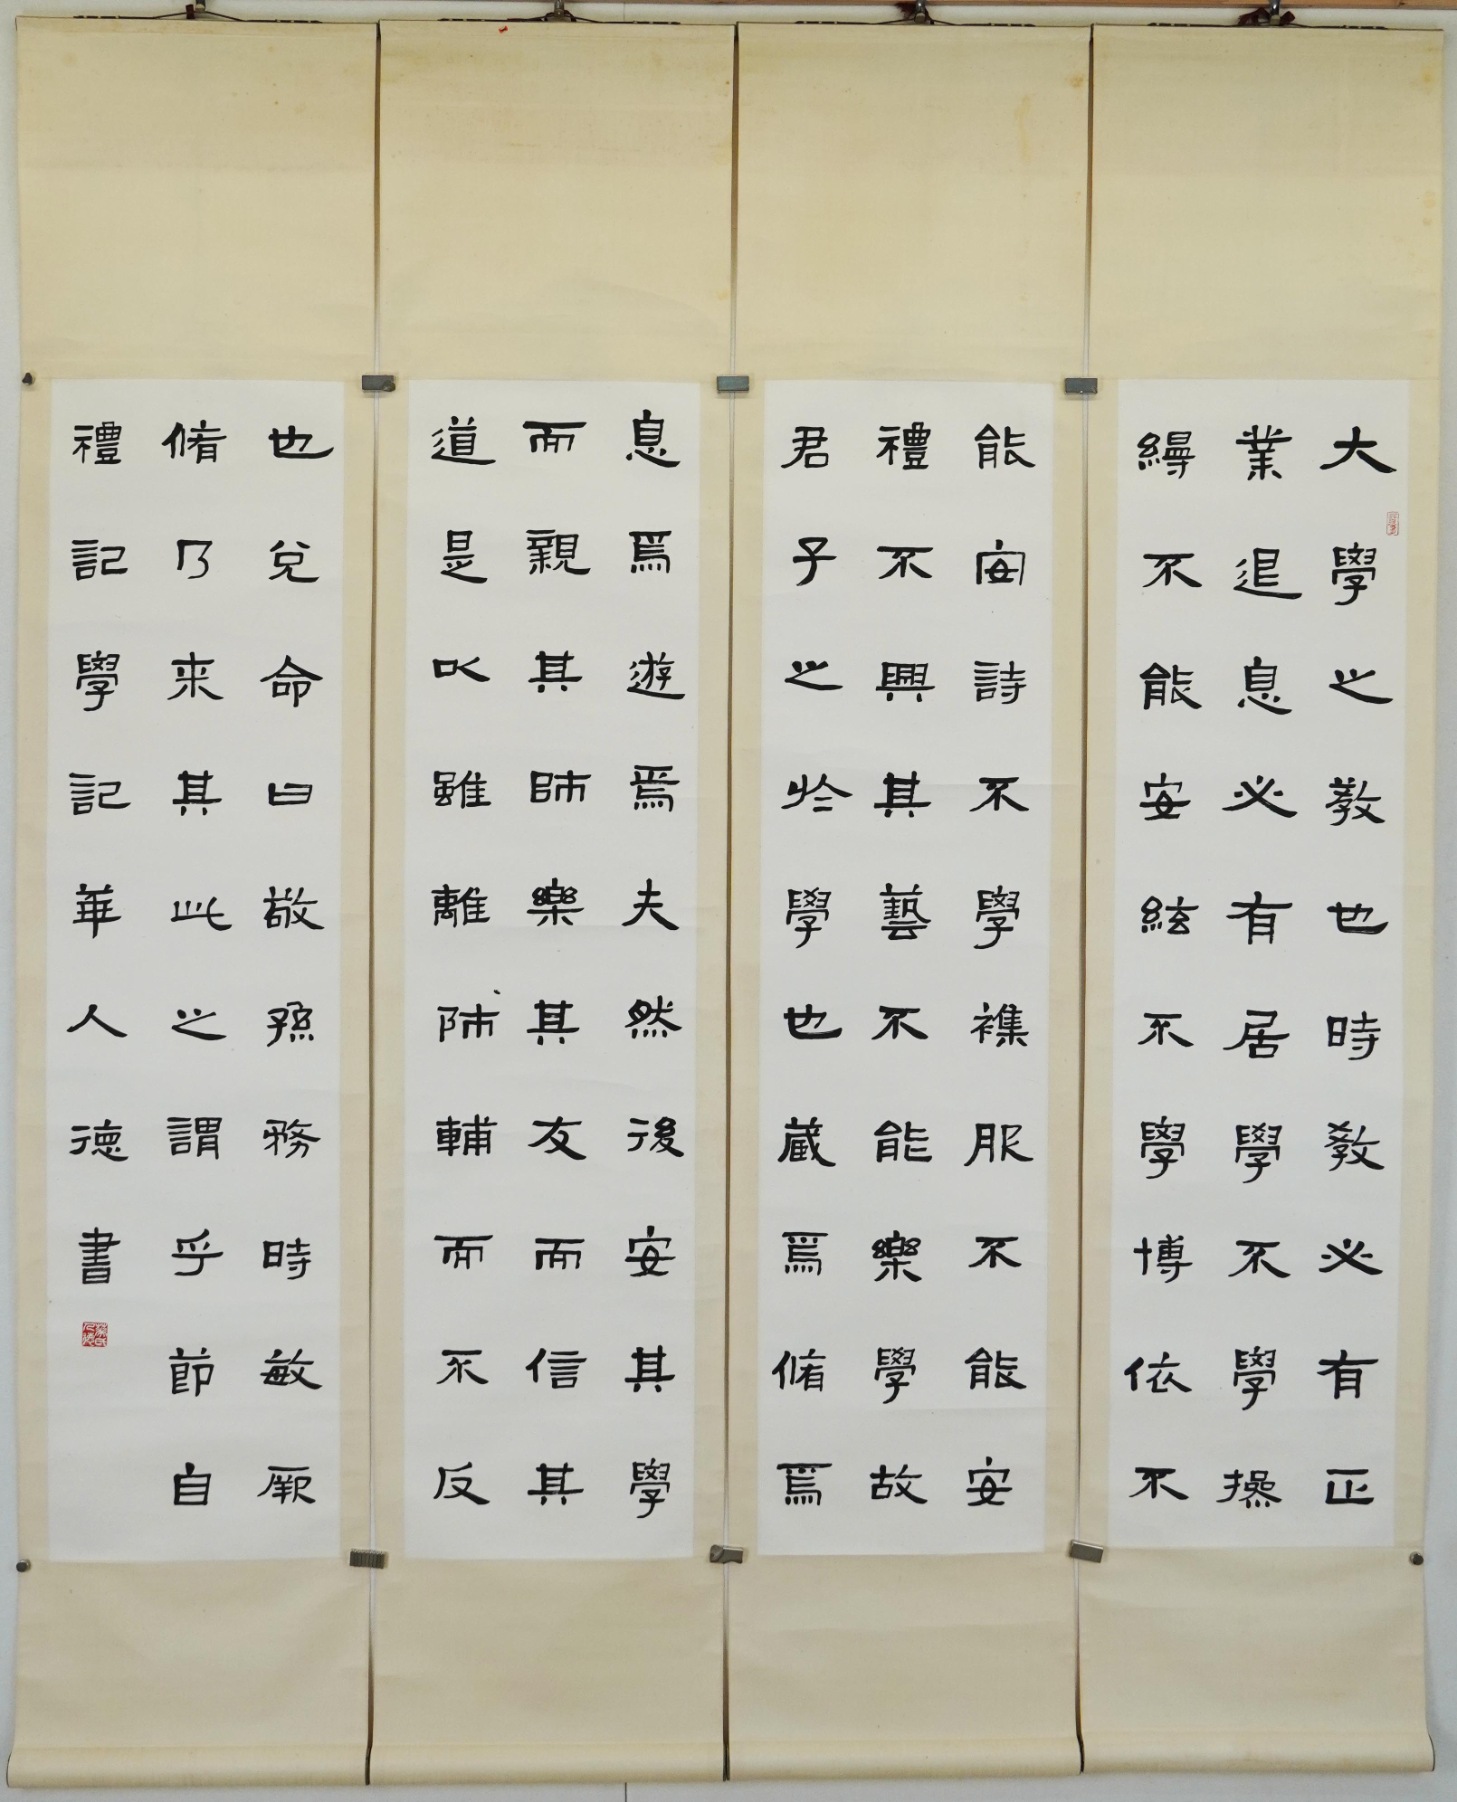 大學之教也時教必有正
業退息必有居學不學操
縵不能安絃不學博依不
能安詩不學襍服不能安
禮不興其藝不能樂學故
君子之於學也蔵焉脩焉
息焉遊焉夫然後安其學
而親其師樂其友而信其
道是以雖離師輔而不反
也兌命曰敬孫務時敏厥
脩乃来其此之謂乎節自
禮記學記華人德書